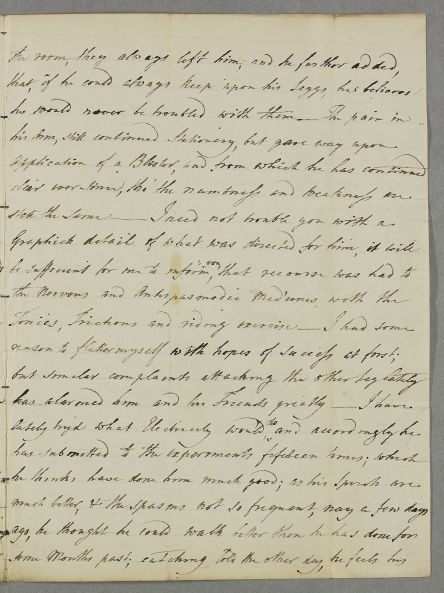 the room, they always left him; and he farther added,
that, if he could always keep upon his Leggs, he believes
he would never be troubled with them — The pain in
his Arm, still continued Stationary, but gave way upon
application of a Blister, and from which he has continued
clear ever since, tho' the numbness and weakness are
still the same — I need not trouble you with a
Graphick detail of what was directed for him, it will
be sufficient for me to inform you, that recourse was had to
the Nervous and Antispasmodic Medicines, with the
Tonics, Frictions and riding exercise — I had some
reason to flatter myself with hopes of success at first;
but similar complaints attacking the other Leg lately
has alarmed him and his Friends greatly — I have
lately try'd what Electricity would do and accordingly he
has submitted to the experiments fifteen times; which
he thinks have done him much good; as his Spirits are
much better, & the Spasms not so frequent, nay a few days
ago, he thought he could walk better than he has done for
some Months past; catching Cold the other day, he feels his